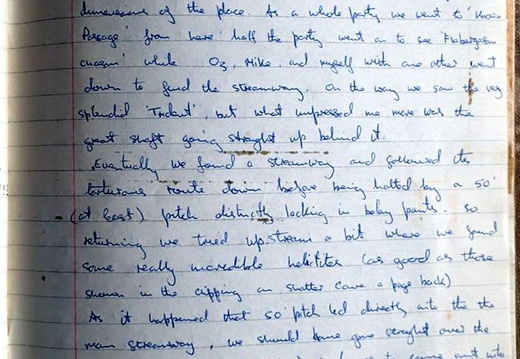 dimensions of the place. As a whole party we went to 'Knee
Passage' from here half the party went on to see Flabbergasm
chasm' while Oz, Mike, and myself with one other went
down to find the streamway. On the way we saw the very
splendid 'Trident', but what impressed me more was the
great shaft going straight up behind it.
Eventually we found a streamway and followed its
torturous route down before being halted by a 50'
(at least) pitch distinctly lacking in belay points. So
returning we tried upstream a bit where we found
some really incredible helictites (as good as those
shown in the clipping on shatter cave a page back)
As it happened that 50' pitch led directly into the the
main streamway, we should have gone straight over the